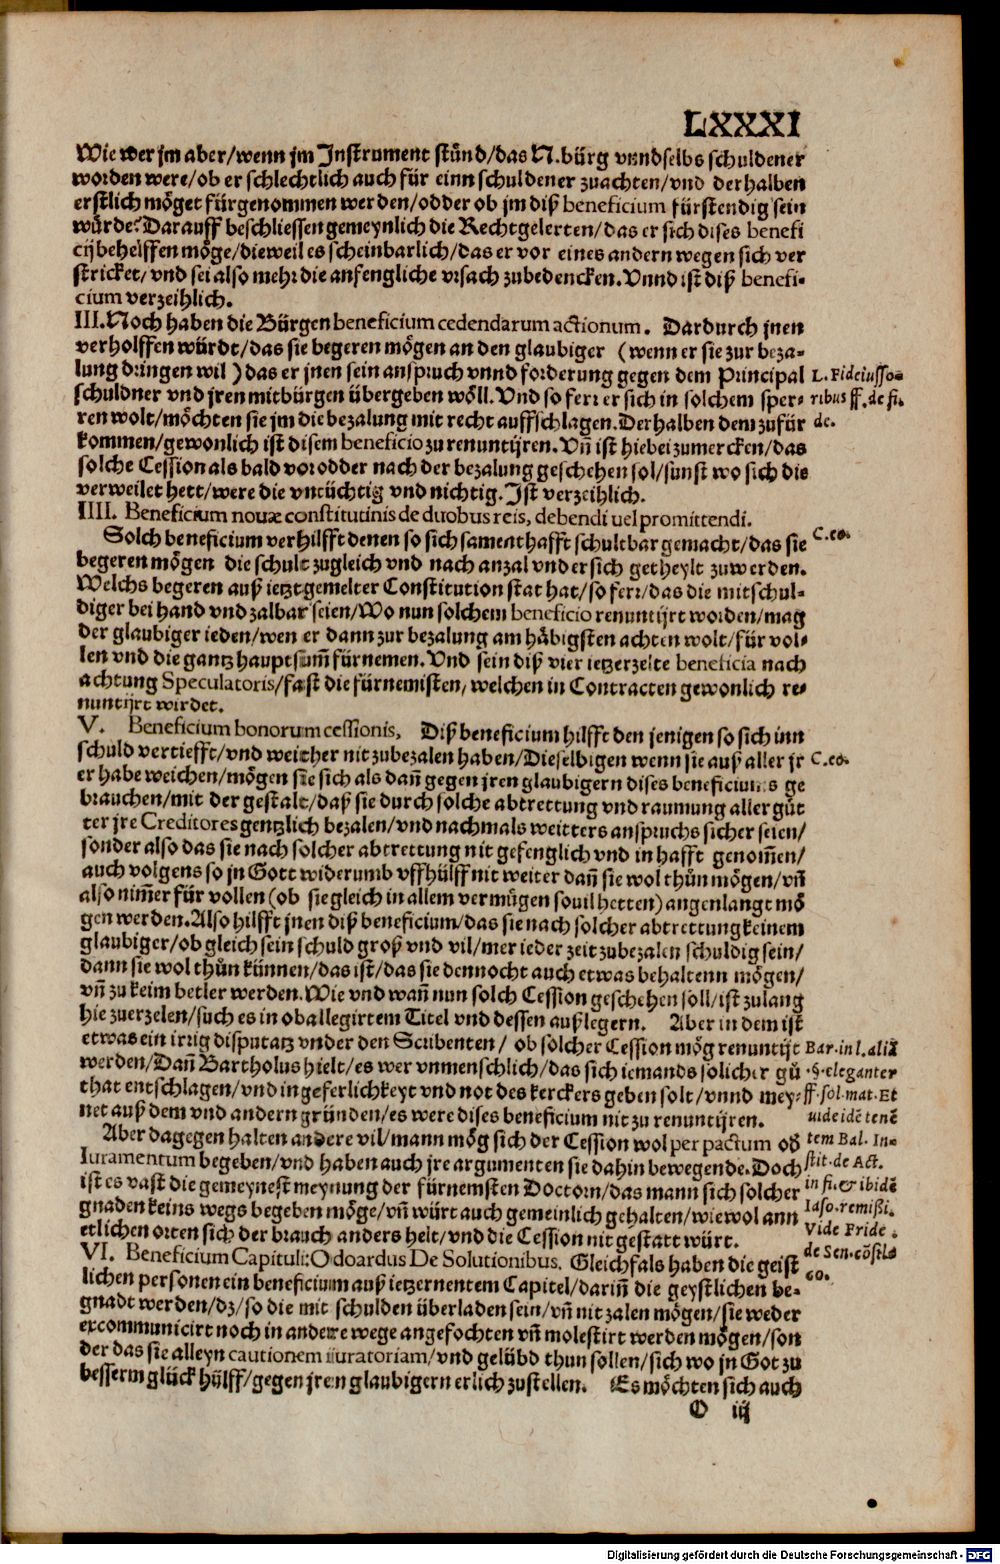 LXXXI
Wie wer jm aber/wenn jm Instrument stünd/das N. bürg vnndselbs schuldener
worden were/ob er schlechtlich auch für einn schuldener zuachten/vnd derhalben
erstlich möget fürgenommen werden/odder ob jm diß beneficium fürstendig sein
würde? Darauff beschliessen gemeynlich die Rechtgelerten/das er sich dises benefi
cij behelffen möge/dieweil es scheinbarlich/das er vor eines andern wegen sich ver
stricket/vnd sei also mehr die anfengliche vrsach zubedencken. Vnnd ist diß benefi-
cium verzeihlich.
III. Noch haben die Bürgen beneficium cedendarum actionum. Dardurch jnen
verholffen würdt/das sie begeren mögen an den glaubiger (wenn er sie zur beza-
lung dringen wil) das er jnen sein anspruch vnnd forderung gegen dem Principal
schuldner vnd jren mitbürgen übergeben wöll. Vnd so ferr er sich in solchem sper-
ren wolt/möchten sie jm die bezalung mit recht auffschlagen. Derhalben dem zufür
kommen/gewonlich ist disem beneficio zu renuntijren. Vñ ist hiebei zumercken/das
solche Cession als bald vor odder nach der bezalung geschehen sol/sunst wo sich die
verweilet hett/were die vntüchtig vnd nichtig. Ist verzeihlich.
L. Fideiusso-
ribus ff. de fi.
de.
IIII. Beneficium nouæ constitutinis de duobus reis, debendi uel promittendi.
Solch beneficium verhilfft denen so sich samenthafft schultbar gemacht/das sie
begeren mögen die schult zugleich vnd nach anzal vnder sich getheylt zuwerden.
Welchs begeren auß ietztgemelter Constitution stat hat/so ferr/das die mitschul-
diger bei hand vnd zalbar seien/Wo nun solchem beneficio renuntijrt worden/mag
der glaubiger ieden/wen er dann zur bezalung am häbigsten achten wolt/für vol-
len vnd die gantz hauptsum̃ fürnemen. Vnd sein diß vier ietzerzelte beneficia nach
achtung Speculatoris/fast die fürnemisten, welchen in Contracten gewonlich re-
nuntijrt wirdet.
C. eo.
V. Beneficium bonorum cessionis, Diß beneficium hilfft den jenigen so sich inn
schuld vertiefft/vnd weither nit zubezalen haben/Dieselbigen wenn sie auß aller jr
er habe weichen/mögen sie sich als dañ gegen jren glaubigern dises beneficiums ge
brauchen/mit der gestalt/daß sie durch solche abtrettung vnd raumung aller güt
ter jre Creditores gentzlich bezalen/vnd nachmals weitters anspruchs sicher seien/
sonder also das sie nach solcher abtrettung nit gefenglich vnd in hafft genom̃en/
auch volgens so jn Gott widerumb vffhülff nit weiter dañ sie wol thůn mögen/vñ
also nim̃er für vollen (ob sie gleich in allem vermügen souil hetten) angenlangt mö
gen werden. Also hilfft jnen diß beneficium/das sie nach solcher abtrettung keinem
glaubiger/ob gleich sein schuld groß vnd vil/mer ieder zeit zubezalen schuldig sein/
dann sie wol thůn künnen/das ist/das sie dennocht auch etwas behaltenn mögen/
vñ zu keim betler werden. Wie vnd wañ nun solch Cession geschehen soll/ist zulang
hie zuerzelen/such es in oballegirtem Titel vnd dessen außlegern. Aber in dem ist
etwas ein irrig disputatz vnder den Scribenten/ ob solcher Cession mög renuntijt
werden/Dañ Bartholus hielt/es wer vnmenschlich/das sich iemands solicher gů
that entschlagen/vnd in geferlichkeyt vnd not des kerckers geben solt/vnnd mey-
net auß dem vnd andern gründen/es were dises beneficium nit zu renuntijren.
C. eo.
Aber dagegen halten andere vil/mann mög sich der Cession wol per pactum od
Iuramentum begeben/vnd haben auch jre argumenten sie dahin bewegende. Doch
ist es vast die gemeynest meynung der fürnemsten Doctorn/das mann sich solcher
gnaden keins wegs begeben möge/vñ würt auch gemeinlich gehalten/wiewol ann
etlichen orten sich der brauch anders helt/vnd die Cession nit gestatt würt.
Bar. in l. aliã
.§. eleganter
ff. sol. mat. Et
uide idẽ tenẽ
tem Bal. In-
stit. de Act.
in fi. & ibidẽ
Iaso. remißi.
Vide Fride.
de Sen. cõsil.
60.
VI. Beneficium Capituli: Odoardus De Solutionibus. Gleichfals haben die geist
lichen personen ein beneficium auß ietzernentem Capitel/dariñ die geystlichen be-
gnadt werden/dz/so die mit schulden überladen sein/vñ nit zalen mögen/sie weder
excommunicirt noch in andere wege angefochten vñ molestirt werden mögen/son
der das sie alleyn cautionem iuratoriam/vnd gelübd thun sollen/sich wo jn Got zu
besserm glück hülff/gegen jren glaubigern erlich zustellen. Es möchten sich auch
O iij
Digitalisierung gefördert durch die Deutsche Forschungsgemeinschaft - DFG